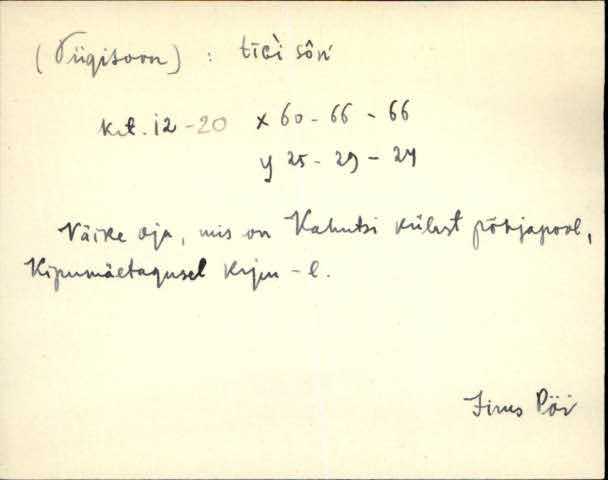 (Tiigisoon) : tīGi sôn
Krt. 12-20 x 60-66-66
y 25-29-24
Väike oja, mis on Kahutsi külast põhjapool,
Kipumäetagusel karjm-l.
Pöi